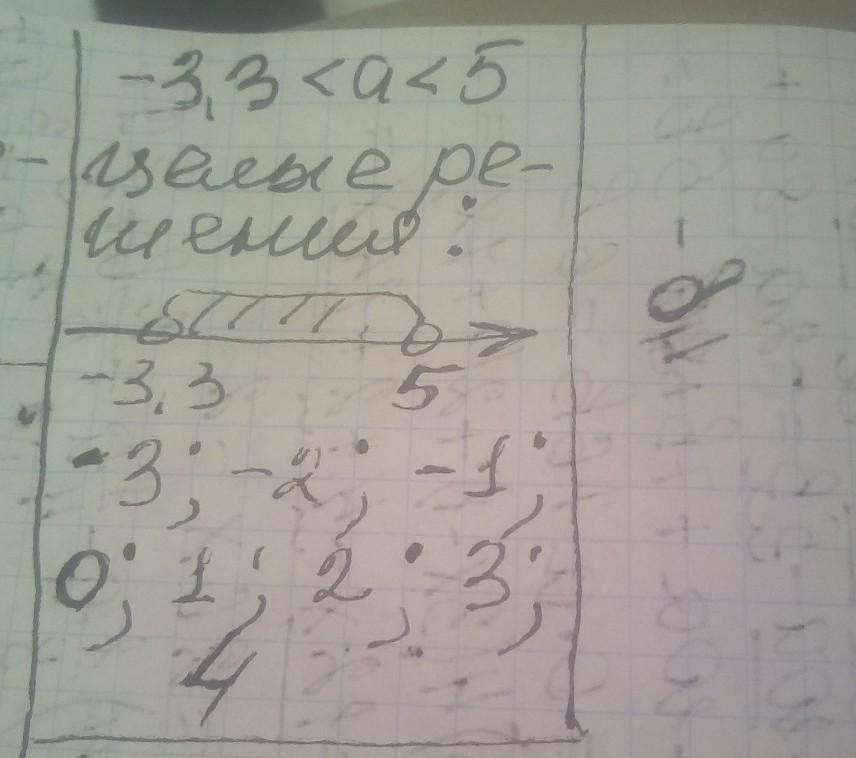 -3,3 < a < 5
целые ре-
шения:
-3,3 5
-3; -2; -1;
0; 1; 2; 3;
4